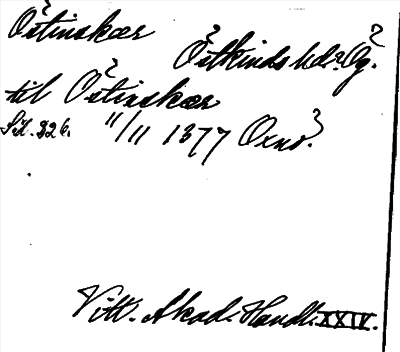 Östinskær
Östkinds hd? Ög.
til Östinskær
11/11 1377 Oxnö?
Vitt. Akad. Handl. XXIV.